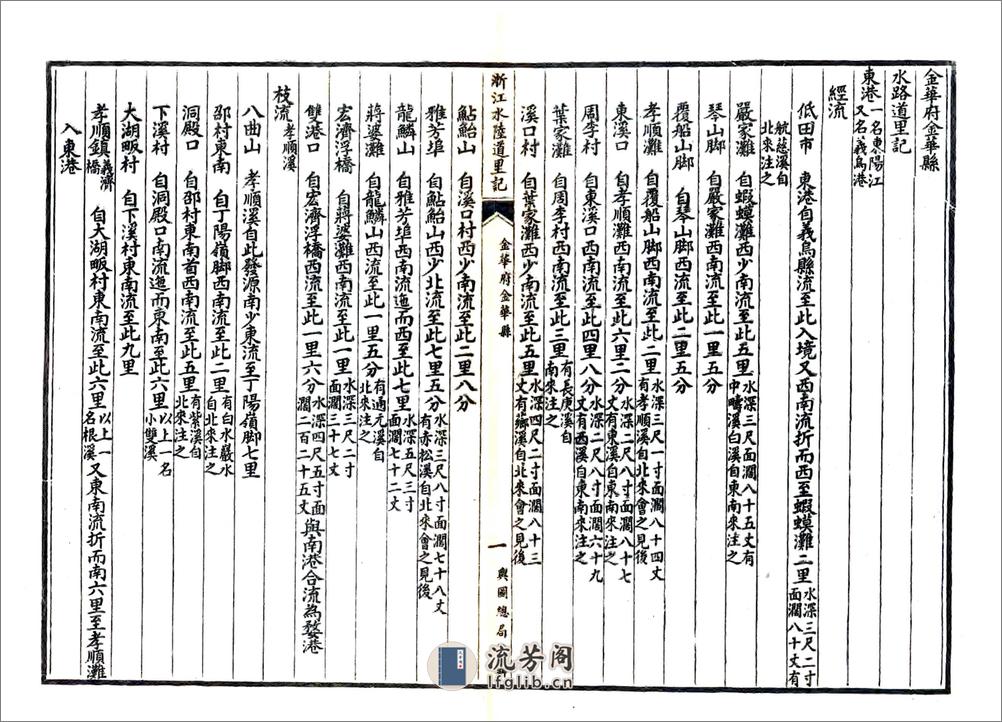 金華府金華縣
水路道里記
東港一名東陽江又名義烏港
經流
低田市 東港自義烏縣流至此入境又西南流折而西至蝦蟆灘二里水深三尺二寸面濶八十丈有
航慈溪自北來注之
嚴家灘 自蝦蟆灘西少南流至此五里水深三尺面濶八十五丈有中疇溪白溪自東南來注之
琴山脚 自嚴家灘西南流至此一里五分
覆船山脚 自琴山脚西南流至此二里五分
孝順灘 自覆船山脚西南流至此二里水深三尺一寸面濶八十四丈有孝順溪自北來會之見後
東溪口 自孝順灘西南流至此六里二分水深二尺八寸面濶八十七丈有東溪自東南來注之
周李村 自東溪口西南流至此四里八分水深二尺八寸面濶六十九丈有西溪自東南來注之
葉家灘 自周李村西南流至此三里有長庚溪自南來注之
溪口村 自葉家灘西少南流至此五里水深四尺二寸面濶八十三丈有薌溪自北來會之見後
浙江水陸道里記
金華府金華縣
一
輿圖總局
鮎鮐山 自溪口村西少南流至此二里八分
雅芳埠 自鮎鮐山西少北流至此七里五分水深三尺八寸面濶七十八丈有赤松溪自北來會之見後
龍鱗山 自雅芳埠西南流迤而西至此七里水深五尺三寸面濶七十二丈
蔣婆灘 自龍鱗山西流至此一里五分有通元溪自北來注之
宏濟浮橋 自蔣婆灘西南流至此一里水深三尺二寸面濶三十七丈
雙港口 自宏濟浮橋西流至此一里六分水深四尺五寸面濶二百二十五丈與南港合流為婺港
枝流孝順溪
八曲山 孝順溪自此發源南少東流至丁陽嶺脚七里
邵村東南 自丁陽嶺脚西南流至此二里有白水巖水自北來注之
洞殿口 自邵村東南首西南流至此五里有紫溪自北來注之
下溪村 自洞殿口南流迤而東南至此六里以上一名小雙溪
大湖畈村 自下溪村東南流至此九里
孝順鎮義濟橋 自大湖畈村東南流至此六里以上一名根溪又東南流折而南六里至孝順灘
入東港
流芳阁
lfglib.cn